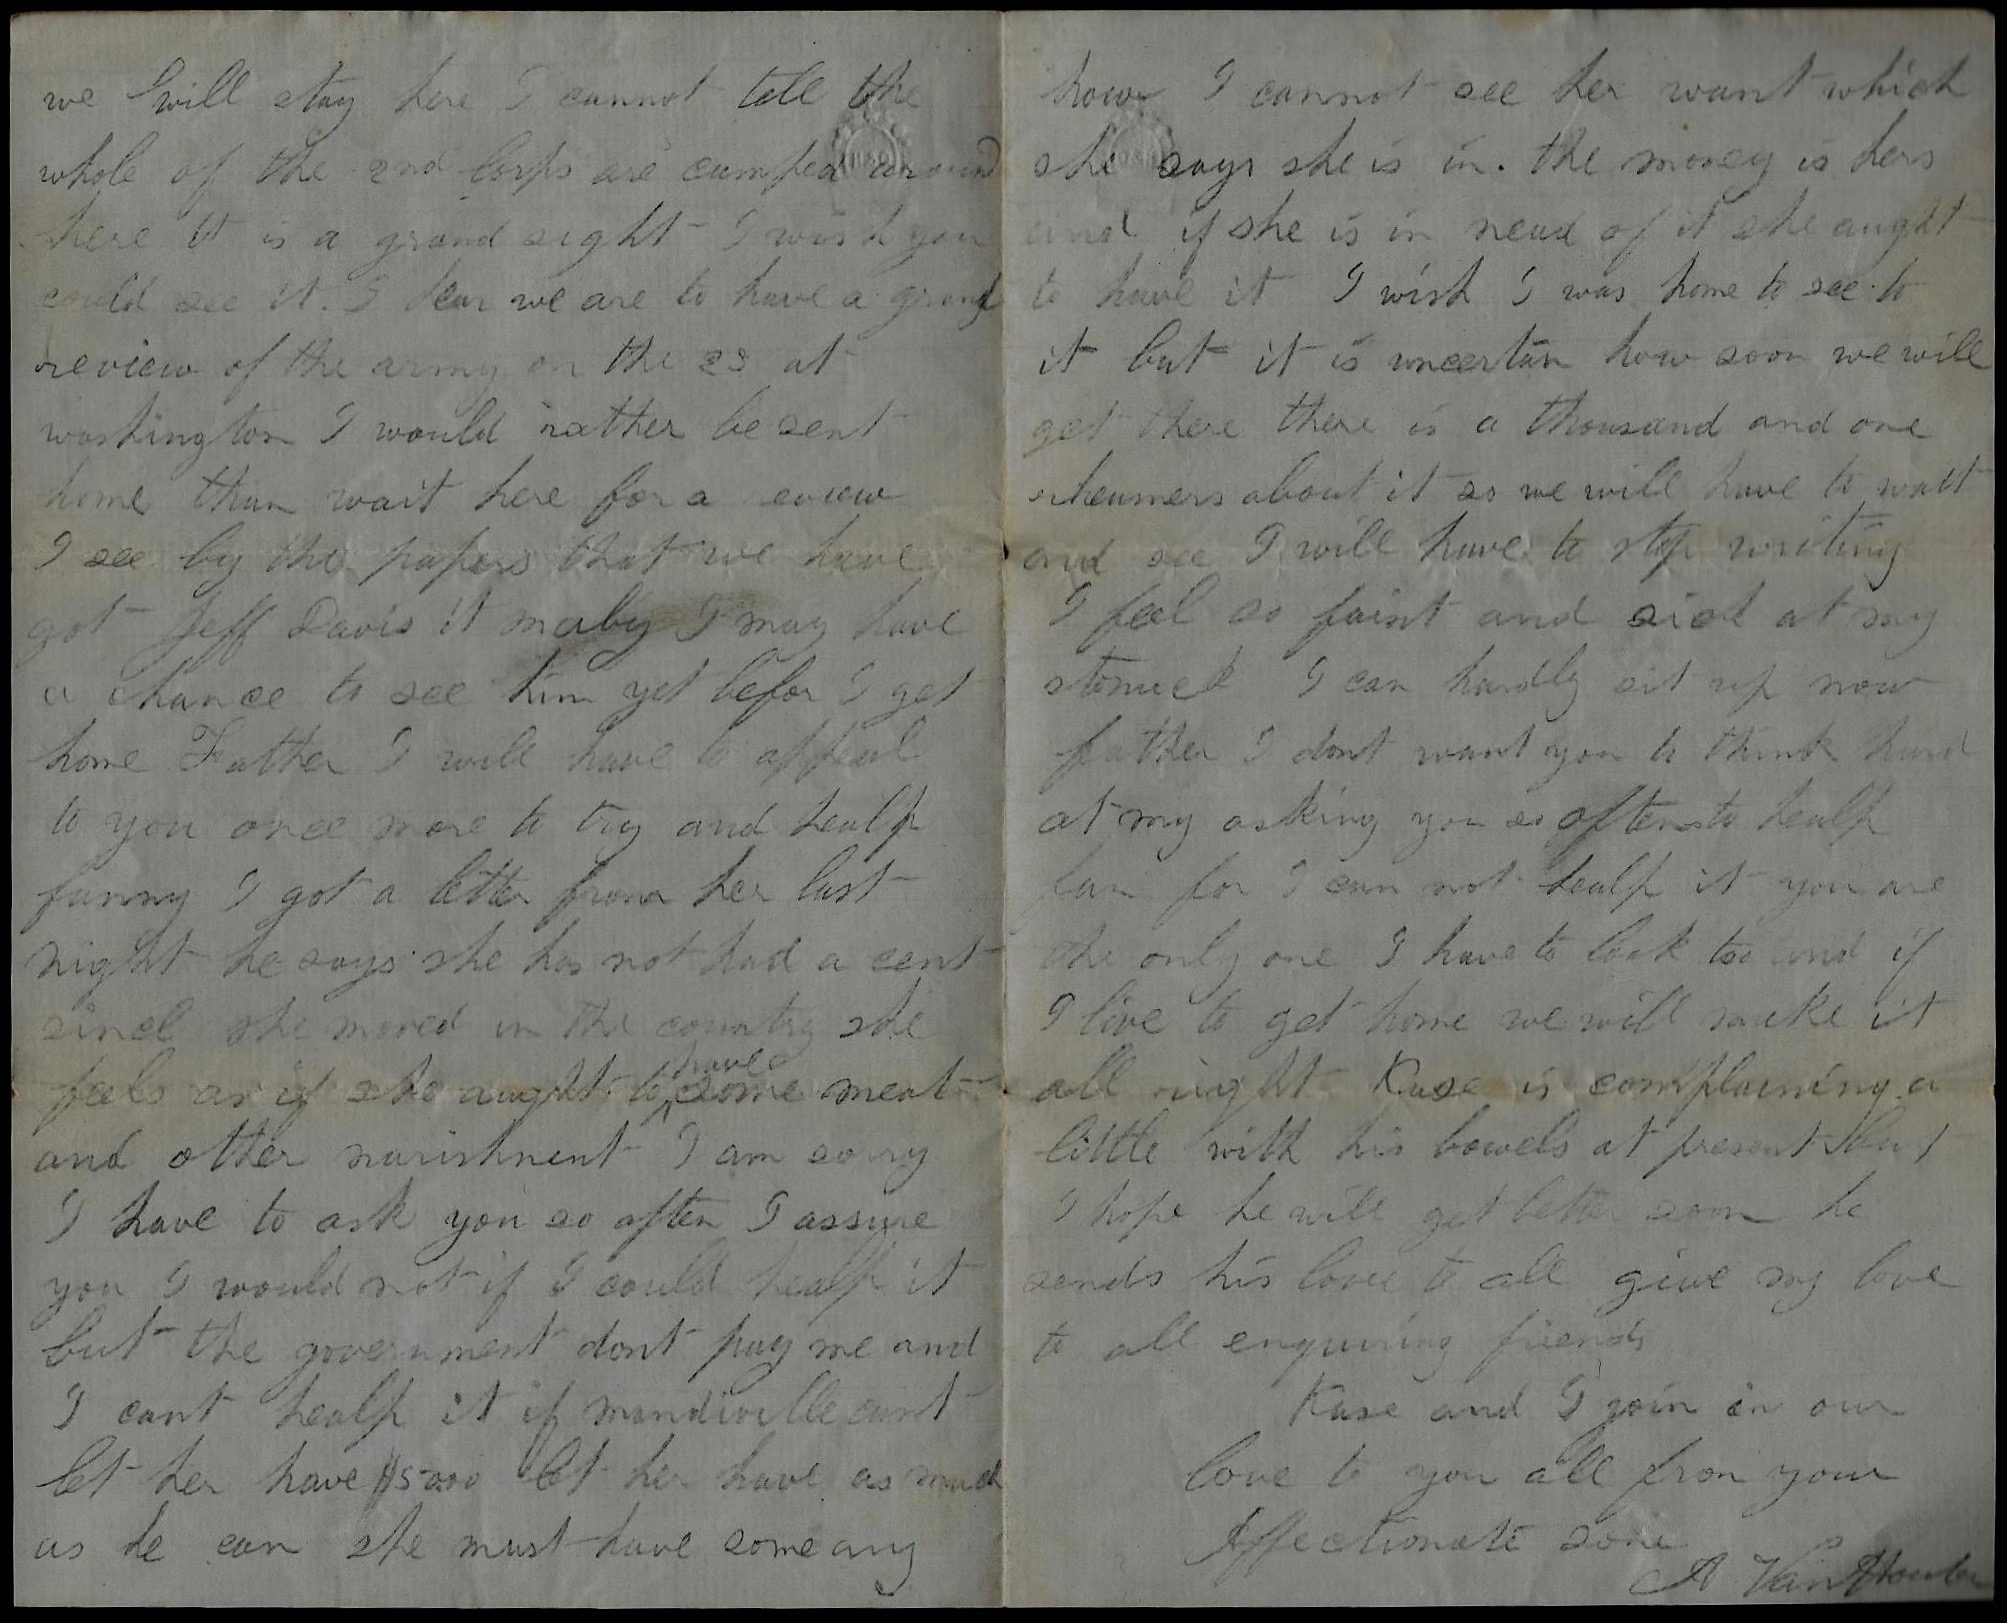 we will stay here I cannot tell the
whole of the 2nd Corps are camped around
here it is a grand sight I wish you
could see it. I hear we are to have a grand
review of the army on the 23 at
washington I would rather be sent
home than wait here for a review
I see by the papers that we have
got Jeff Davis it maby I may have
a chance to see him yet befor I get
home Father I will have to appeal
to you once more to try and healp
fanny I got a letter from her last
night he says she has not had a cent
since she moved in the country she
feels as if she aught to have some meat
and other nurishment I am sorry
I have to ask you so often I assure
you I would not if I could healp it
but the government dont pay me and
I cant healp it if mandiville cant
let her have let her have as much
as he can she must have some any
how I cannot see her want which
she says she is in. the money is hers
and if she is in nead of it she aught
to have it I wish I was home to see to
it but it is uncertan how soon we will
get there there is a thousand and one
rheumers about it so we will have to watt
and see I will have to stop writing
I feel so faint and sick at my
stomick I can hardly sit up now
father I dont want you to think hard
at my asking you so often to healp
fan for I can not healp it you are
the only one I have to look too and if
I live to get home we will make it
all right Kase is complaining a
little with his bowels at present but
I hope he will get better soon he
sends his love to all give my love
to all enquiring friends
Kase and I join in our
love to you all from your
Affectionate sone
A Van Houten